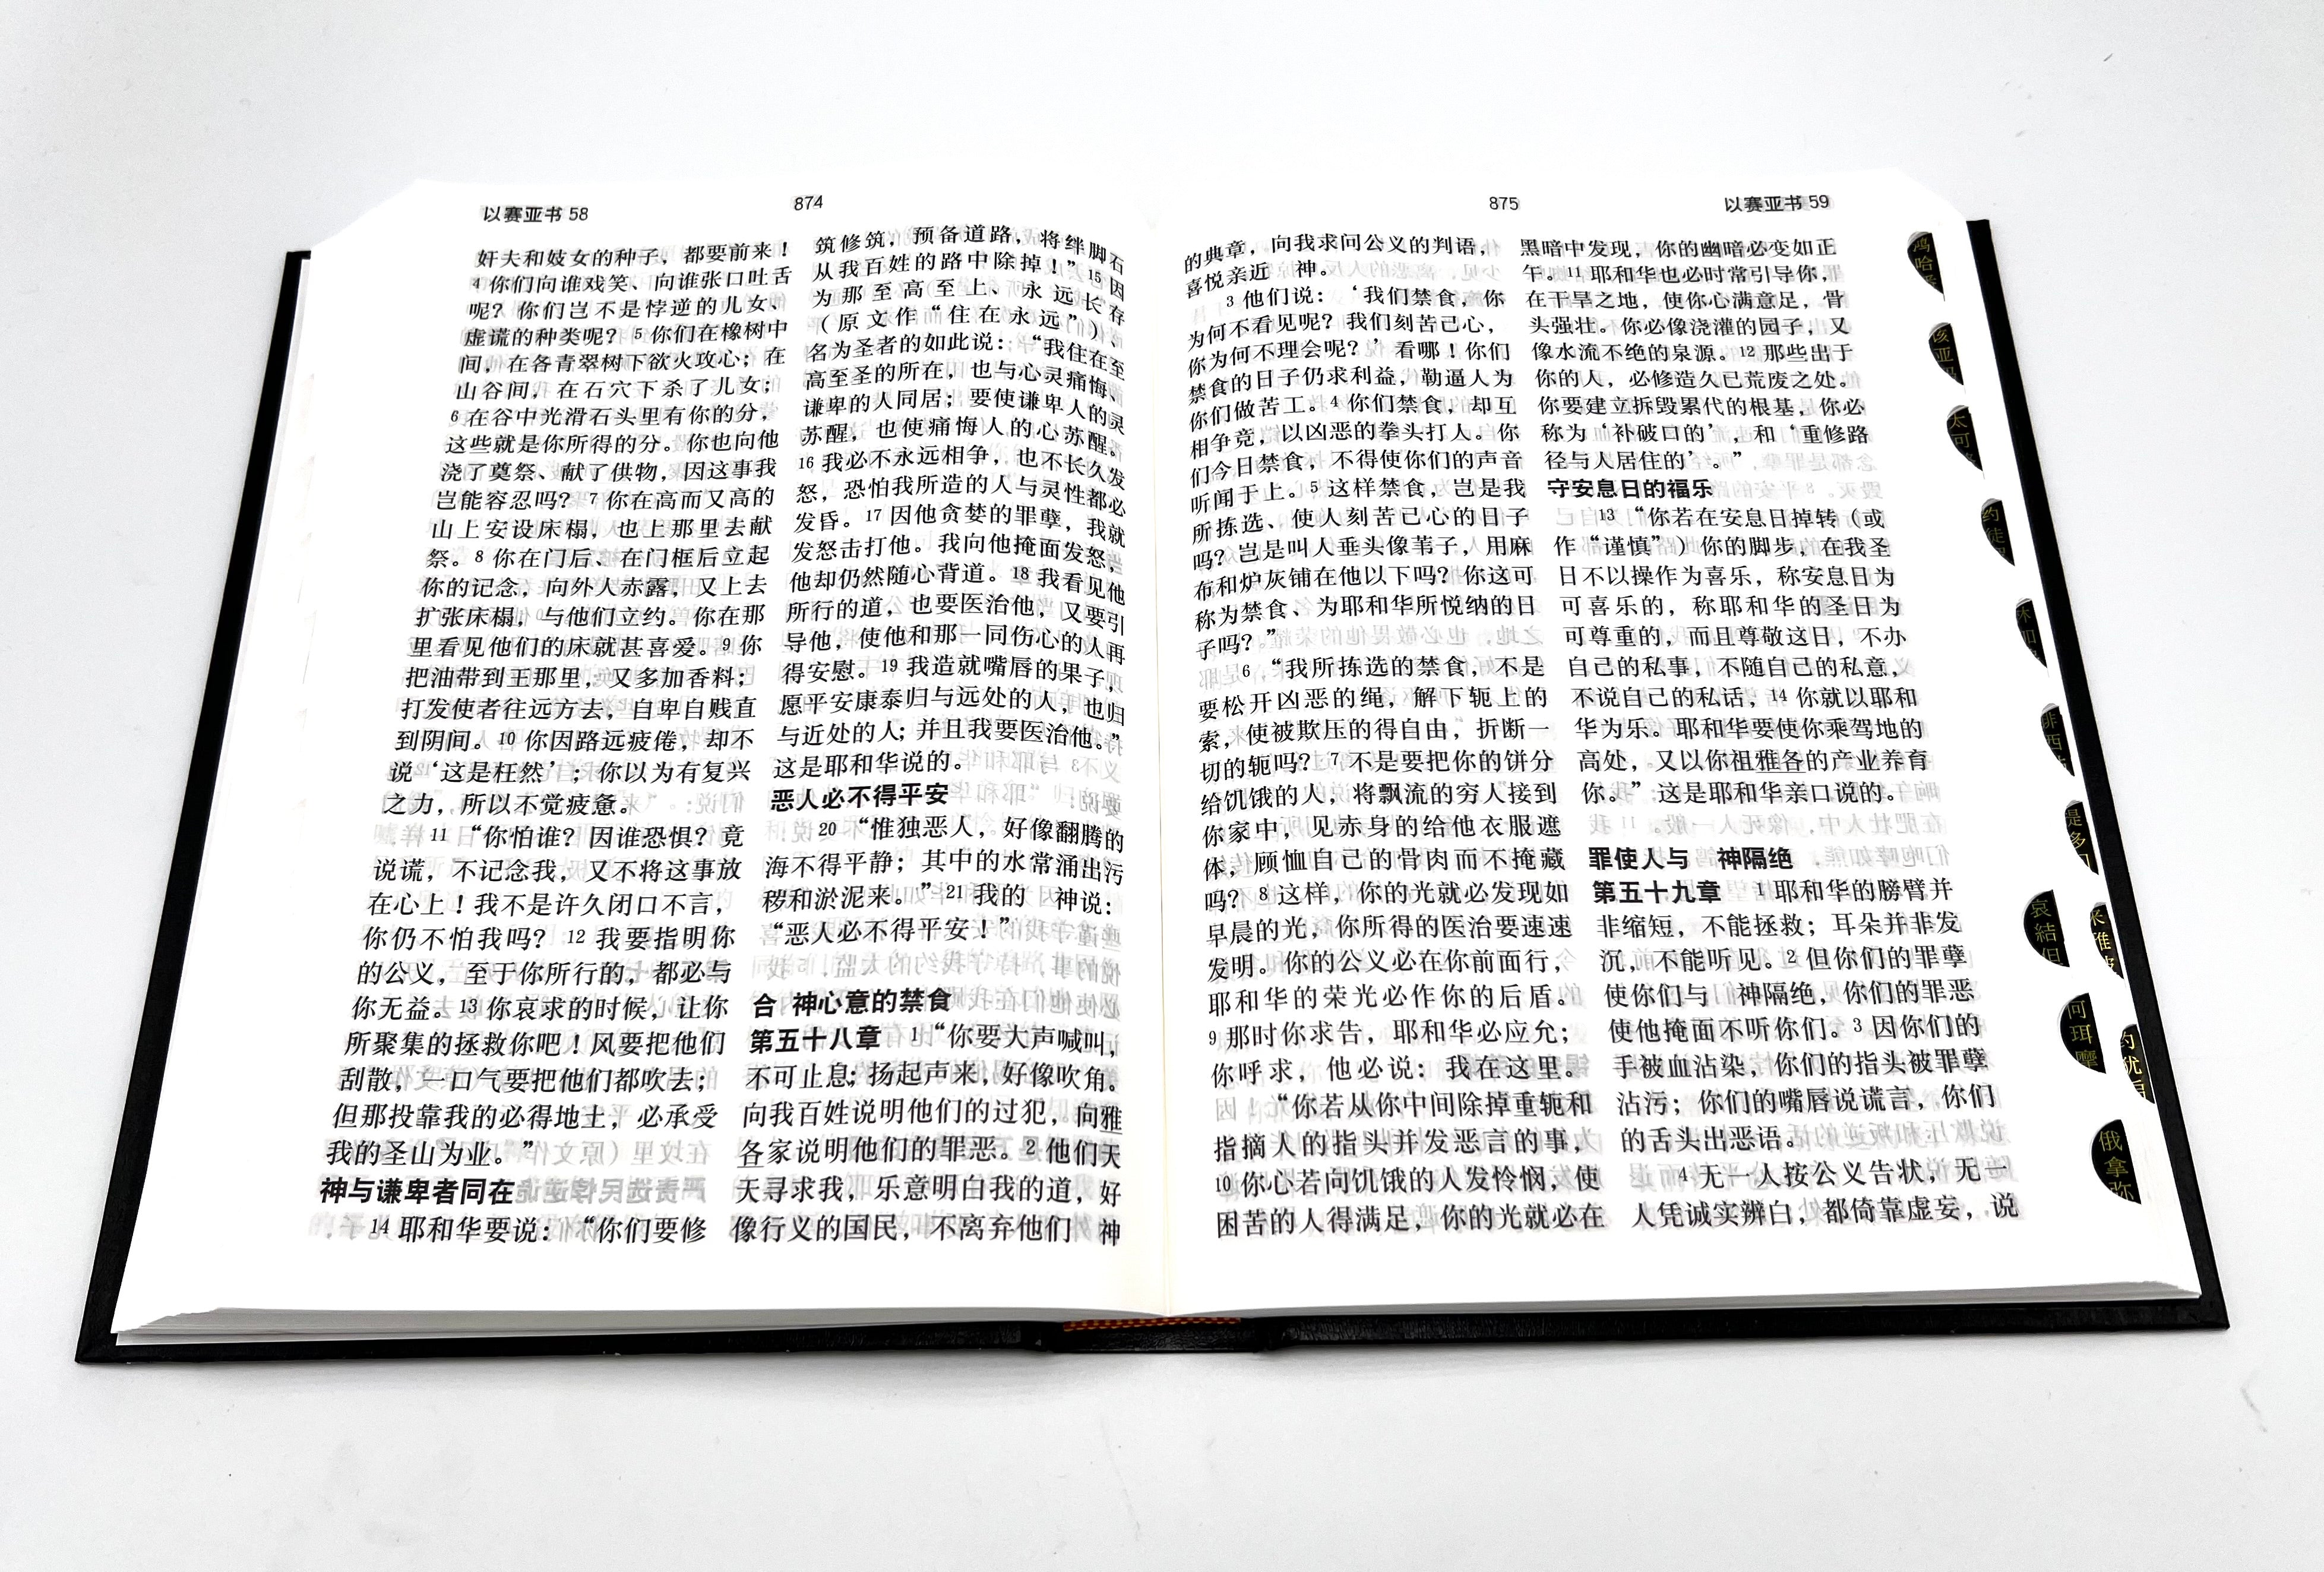 以赛亚书 58
874
奸夫和妓女的种子，都要前来！
4 你们向谁戏笑、向谁张口吐舌
呢？你们岂不是悖逆的儿女、
虚谎的种类呢？5 你们在橡树中
间，在各青翠树下欲火攻心；在
山谷间，在石穴下杀了儿女；
6 在谷中光滑石头里有你的分，
这些就是你所得的分。你也向他
浇了奠祭、献了供物，因这事我
岂能容忍吗？7 你在高而又高的
山上安设床榻，也上那里去献
祭。8 你在门后、在门框后立起
你的记念，向外人赤露，又上去
扩张床榻，与他们立约。你在那
里看见他们的床就甚喜爱。9 你
把油带到王那里，又多加香料；
打发使者往远方去，自卑自贱直
到阴间。10 你因路远疲倦，却不
说‘这是枉然’；你以为有复兴
之力，所以不觉疲惫。
11 “你怕谁？因谁恐惧？竟
说谎，不记念我，又不将这事放
在心上！我不是许久闭口不言，
你仍不怕我吗？12 我要指明你
的公义，至于你所行的，都必与
你无益。13 你哀求的时候，让你
所聚集的拯救你吧！风要把他们
刮散，一口气要把他们都吹去；
但那投靠我的必得地土，必承受
我的圣山为业。”
神与谦卑者同在
14 耶和华要说：“你们要修
筑修筑，预备道路，将绊脚石
从我百姓的路中除掉！”15 因
为那至高至上、永远长存
（原文作“住在永远”）、
名为圣者的如此说：“我住在至
高至圣的所在，也与心灵痛悔、
谦卑的人同居；要使谦卑人的灵
苏醒，也使痛悔人的心苏醒。
16 我必不永远相争，也不长久发
怒，恐怕我所造的人与灵性都必
发昏。17 因他贪婪的罪孽，我就
发怒击打他。我向他掩面发怒，
他却仍然随心背道。18 我看见他
所行的道，也要医治他，又要引
导他，使他和那一同伤心的人再
得安慰。19 我造就嘴唇的果子，
愿平安康泰归与远处的人，也归
与近处的人；并且我要医治他。”
这是耶和华说的。
恶人必不得平安
20 “惟独恶人，好像翻腾的
海不得平静；其中的水常涌出污
秽和淤泥来。”21 我的　神说：
“恶人必不得平安！”
合　神心意的禁食
第五十八章　1 “你要大声喊叫，
不可止息；扬起声来，好像吹角。
向我百姓说明他们的过犯，向雅
各家说明他们的罪恶。2 他们天
天寻求我，乐意明白我的道，好
像行义的国民，不离弃他们　神
875
以赛亚书 59
的典章，向我求问公义的判语，
喜悦亲近　神。
3 他们说：‘我们禁食，你
为何不看见呢？我们刻苦己心，
你为何不理会呢？’看哪！你们
禁食的日子仍求利益，勒逼人为
你们做苦工。4 你们禁食，却互
相争竞，以凶恶的拳头打人。你
们今日禁食，不得使你们的声音
听闻于上。5 这样禁食，岂是我
所拣选、使人刻苦己心的日子
吗？岂是叫人垂头像苇子，用麻
布和炉灰铺在他以下吗？你这可
称为禁食、为耶和华所悦纳的日
子吗？”
6 “我所拣选的禁食，不是
要松开凶恶的绳，解下轭上的
索，使被欺压的得自由，折断一
切的轭吗？7 不是要把你的饼分
给饥饿的人，将飘流的穷人接到
你家中，见赤身的给他衣服遮
体，顾恤自己的骨肉而不掩藏
吗？8 这样，你的光就必发现如
早晨的光，你所得的医治要速速
发明。你的公义必在你前面行，
耶和华的荣光必作你的后盾。
9 那时你求告，耶和华必应允；
你呼求，他必说：我在这里。
“你若从你中间除掉重轭和
指摘人的指头并发恶言的事，
10 你心若向饥饿的人发怜悯，使
困苦的人得满足，你的光就必在
黑暗中发现，你的幽暗必变如正
午。11 耶和华也必时常引导你，
在干旱之地，使你心满意足，骨
头强壮。你必像浇灌的园子，又
像水流不绝的泉源。12 那些出于
你的人，必修造久已荒废之处。
你要建立拆毁累代的根基，你必
称为‘补破口的’，和‘重修路
径与人居住的’。”
守安息日的福乐
13 “你若在安息日掉转（或
作“谨慎”）你的脚步，在我圣
日不以操作为喜乐，称安息日为
可喜乐的，称耶和华的圣日为
可尊重的，而且尊敬这日，不办
自己的私事，不随自己的私意，
不说自己的私话，14 你就以耶和
华为乐。耶和华要使你乘驾地的
高处，又以你祖雅各的产业养育
你。”这是耶和华亲口说的。
罪使人与　神隔绝
第五十九章　1 耶和华的膀臂并
非缩短，不能拯救；耳朵并非发
沉，不能听见。2 但你们的罪孽
使你们与　神隔绝，你们的罪恶
使他掩面不听你们。3 因你们的
手被血沾染，你们的指头被罪孽
沾污；你们的嘴唇说谎言，你们
的舌头出恶语。
4 无一人按公义告状，无一
人凭诚实辨白，都倚靠虚妄，说
鸿
哈
该
亚
太
可
约
徒
林
加
西
提
多
哀
結
但
雅
何
珥
摩
约
犹
俄
拿
弥